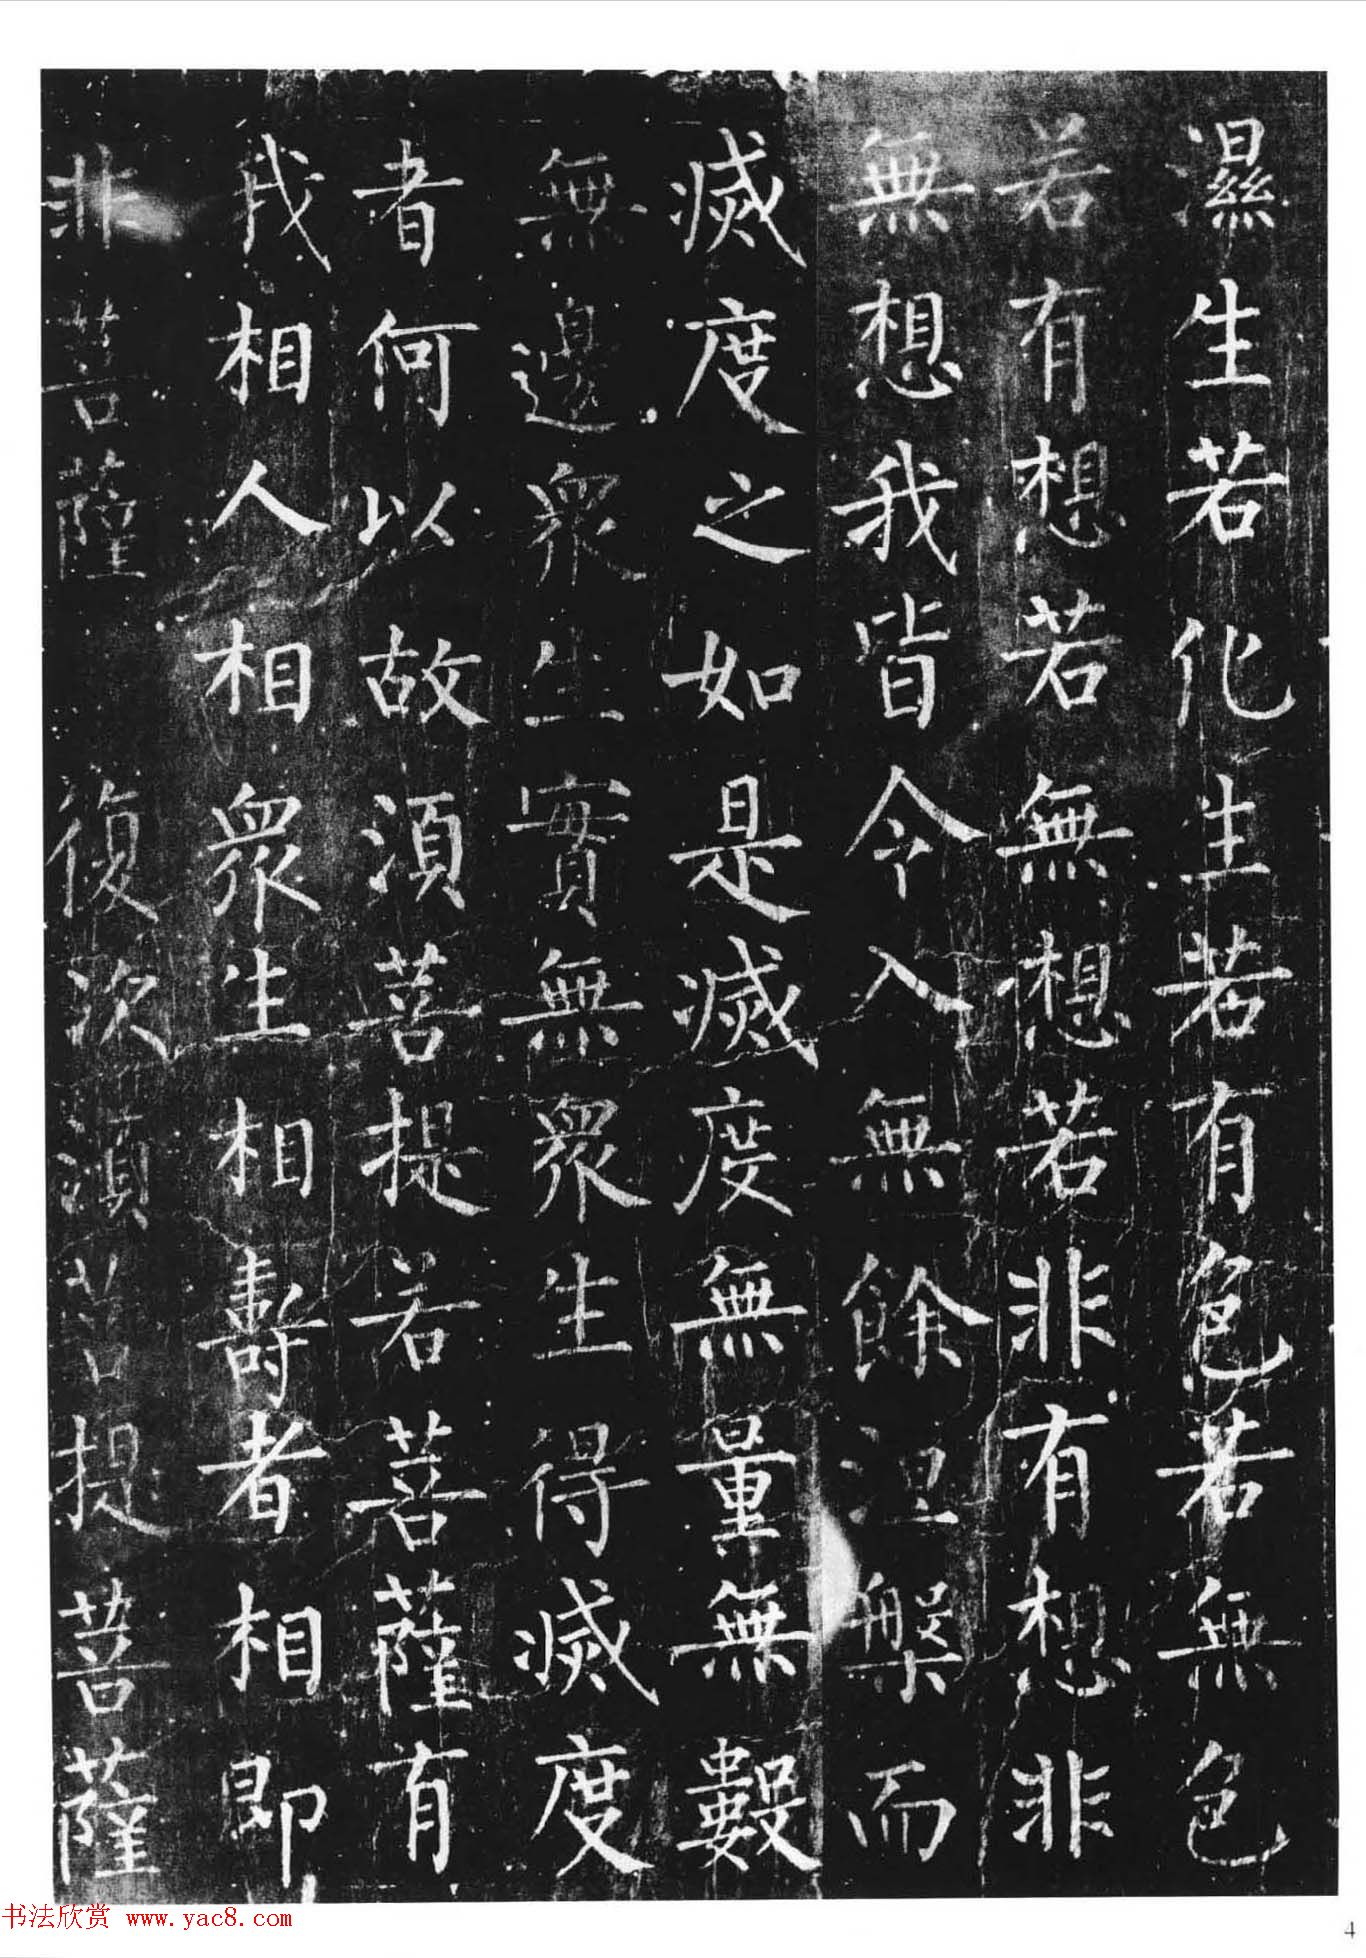 濕生若化生若有色若無色
若有想若無想若非有想非
無想我皆令入無餘涅槃而
滅度之如是滅度無量無數
無邊眾生實無眾生得滅度
者何以故須菩提若菩薩有
我相人相眾生相壽者相即
非菩薩 復次須菩提菩薩
书法欣赏 www.yac8.com
4